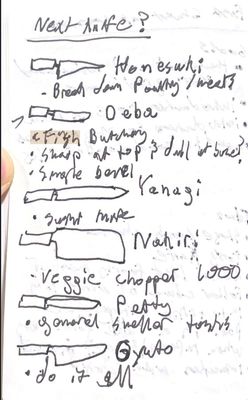 Next knife?
Honesuki
- Break down Poultry/meats
Deba
• Fish Butchery
• sharp at top & dull at base
• single bevel
Yanagi
• Sushi knife
Nakiri
- Veggie chopper
Petty
• general smaller tasks
Gyuto
• do it all